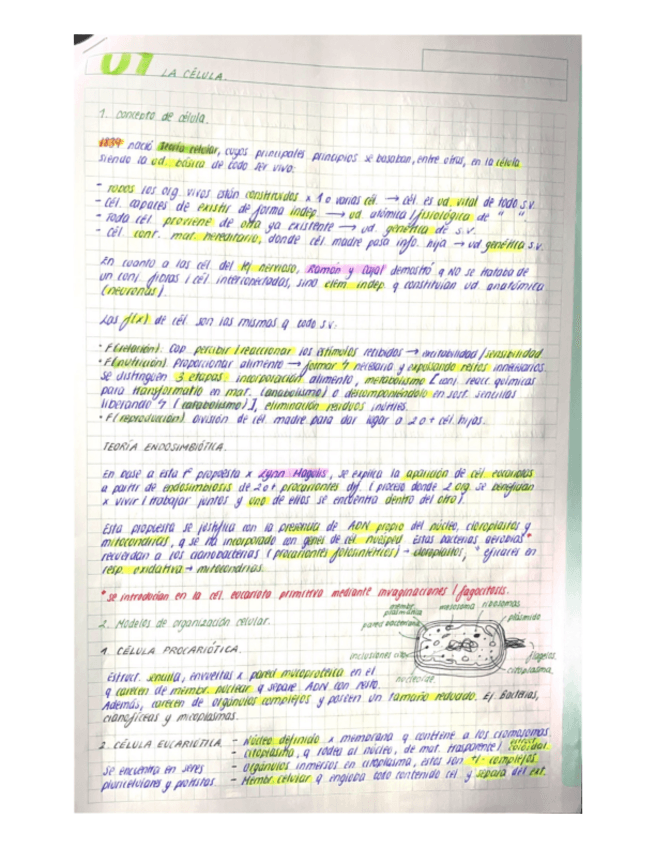 01 LA CÉLULA.
1. Concepto de célula.
1839 nació teoría celular, cuyos principales principios se basaban, entre otros, en la célula
siendo la ud. básica de todo ser vivo:
- Todos los org. vivos están construidos x 1 o varias cél. → cél. es ud. vital de todo s.v.
- Cél. capaces de existir de forma indep. → ud. atómica / fisiológica de " "
- Toda cél. proviene de otra ya existente → ud. genética de s.v.
- Cél. cont. mat. hereditario, donde cél. madre pasa info. hija → ud genética s.v.
En cuanto a las cél. del tej nervioso, Ramón y Cajal demostró q NO se trataba de
un conj. fibras / cél. interconectadas, sino elem indep. q constituían ud. anatómica
(neuronas).
Las f(x) de cél. son las mismas q todo s.v:
· F(relación): cap. percibir / reaccionar los estímulos recibidos → irritabilidad / sensibilidad.
· F(nutrición) proporcionar alimento → formar ϟ necesaria y expulsando restos innecesarios.
Se distinguen 3 etapas: incorporación alimento, metabolismo [conj. reacc. químicas
para transformarlo en mat. (anabolismo) o descomponiéndolo en sust. sencillas
liberando ϟ (catabolismo)], eliminación residuos inútiles.
· F(reproducción). División de cél. madre para dar lugar a 2 o + cél. hijas.
TEORÍA ENDOSIMBIÓTICA.
En base a esta propuesta x Lynn Magulis, se explica la aparición de cél. eucariotas
a partir de endosimbiosis de 2 o + procariontes dif. (proceso donde 2 org. se benefician
x vivir / trabajar juntos y uno de ellos se encuentra dentro del otro)
Esta propuesta se justifica con la presencia de ADN propio del núcleo, cloroplastos y
mitocondrias, q se ha incorporado con genes de cél huésped. Estas bacterias aerobias*
recuerdan a las cianobacterias (procariontes fotosintéticos) → cloroplastos, * eficaces en
resp. oxidativa → mitocondrias.
* se introducían en la cél. eucariota primitiva mediante invaginaciones / fagocitosis.
2. Modelos de organización celular.
membr. plasmática
mesosoma
ribosomas
pared bacteriana
plásmido
inclusiones
flagelos
citoplasma
nucleoide
1. CÉLULA PROCARIÓTICA.
Estruct. sencilla, envueltas x pared mucoproteica en el
q carecen de membr. nuclear q separe ADN con resto.
Además, carecen de orgánulos complejos y poseen un tamaño reducido. Ej. Bacterias,
cianofíceas y micoplasmas.
2. CÉLULA EUCARIÓTICA
- Núcleo definido x membrana q contiene a los cromosomas
- Citoplasma, q rodea al núcleo, de mat. trasparente / coloidal.
Se encuentra en seres
- Orgánulos inmersos en citoplasma, estos son +/- complejos
pluricelulares y protistas.
- Membr. celular q engloba todo contenido cél. y separa del ext.